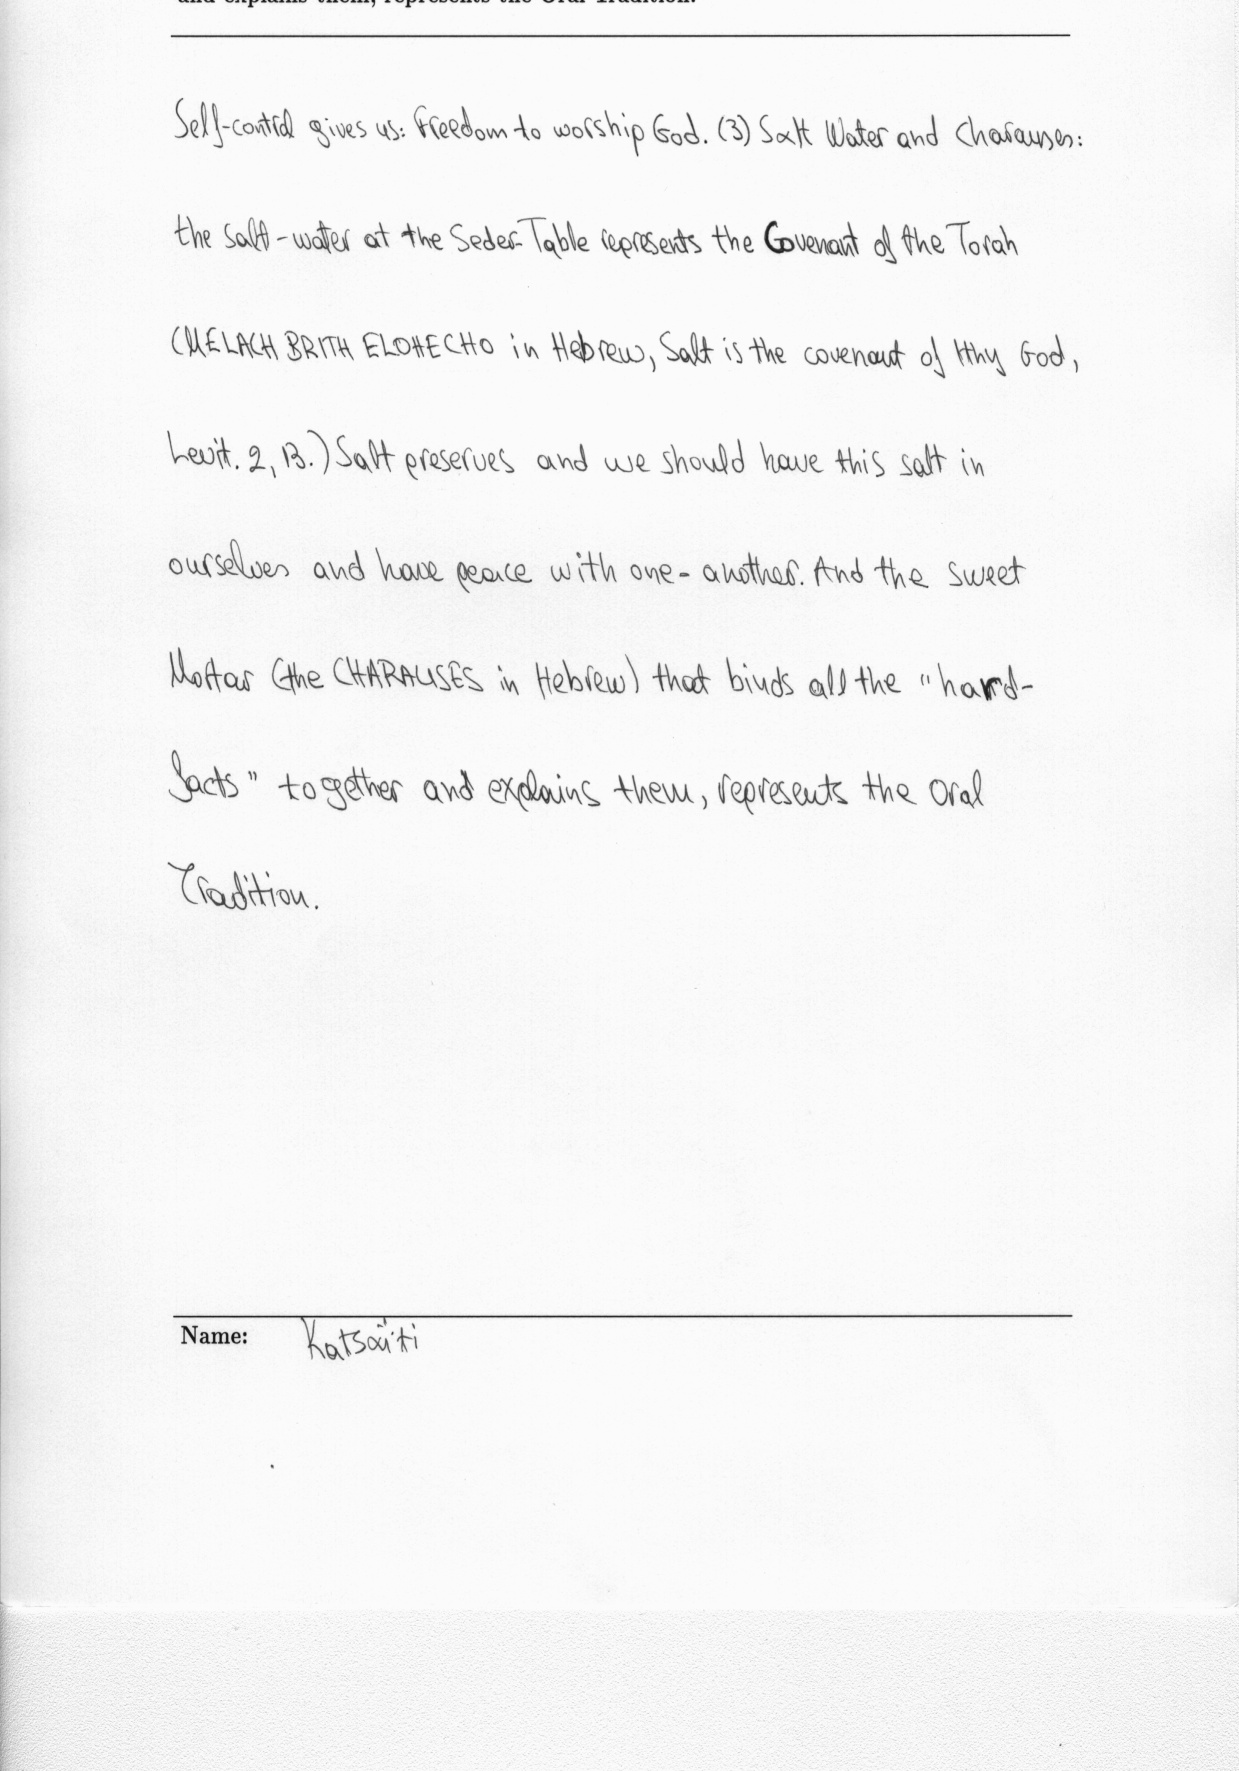 and explains them, represents the Oral Tradition.
Self-control gives us: Freedom to worship God. (3) Salt Water and Charauses:
the salt-water at the Seder-Table represents the Covenant of the Torah
(MELACH BRITH ELOHECHO in Hebrew, Salt is the covenant of thy God,
Levit. 2, 13.) Salt preserves and we should have this salt in
ourselves and have peace with one-another. And the sweet
Mortar (the CHARAUSES in Hebrew) that binds all the "hard-
facts" together and explains them, represents the Oral
Tradition.
Name: Katsaiti